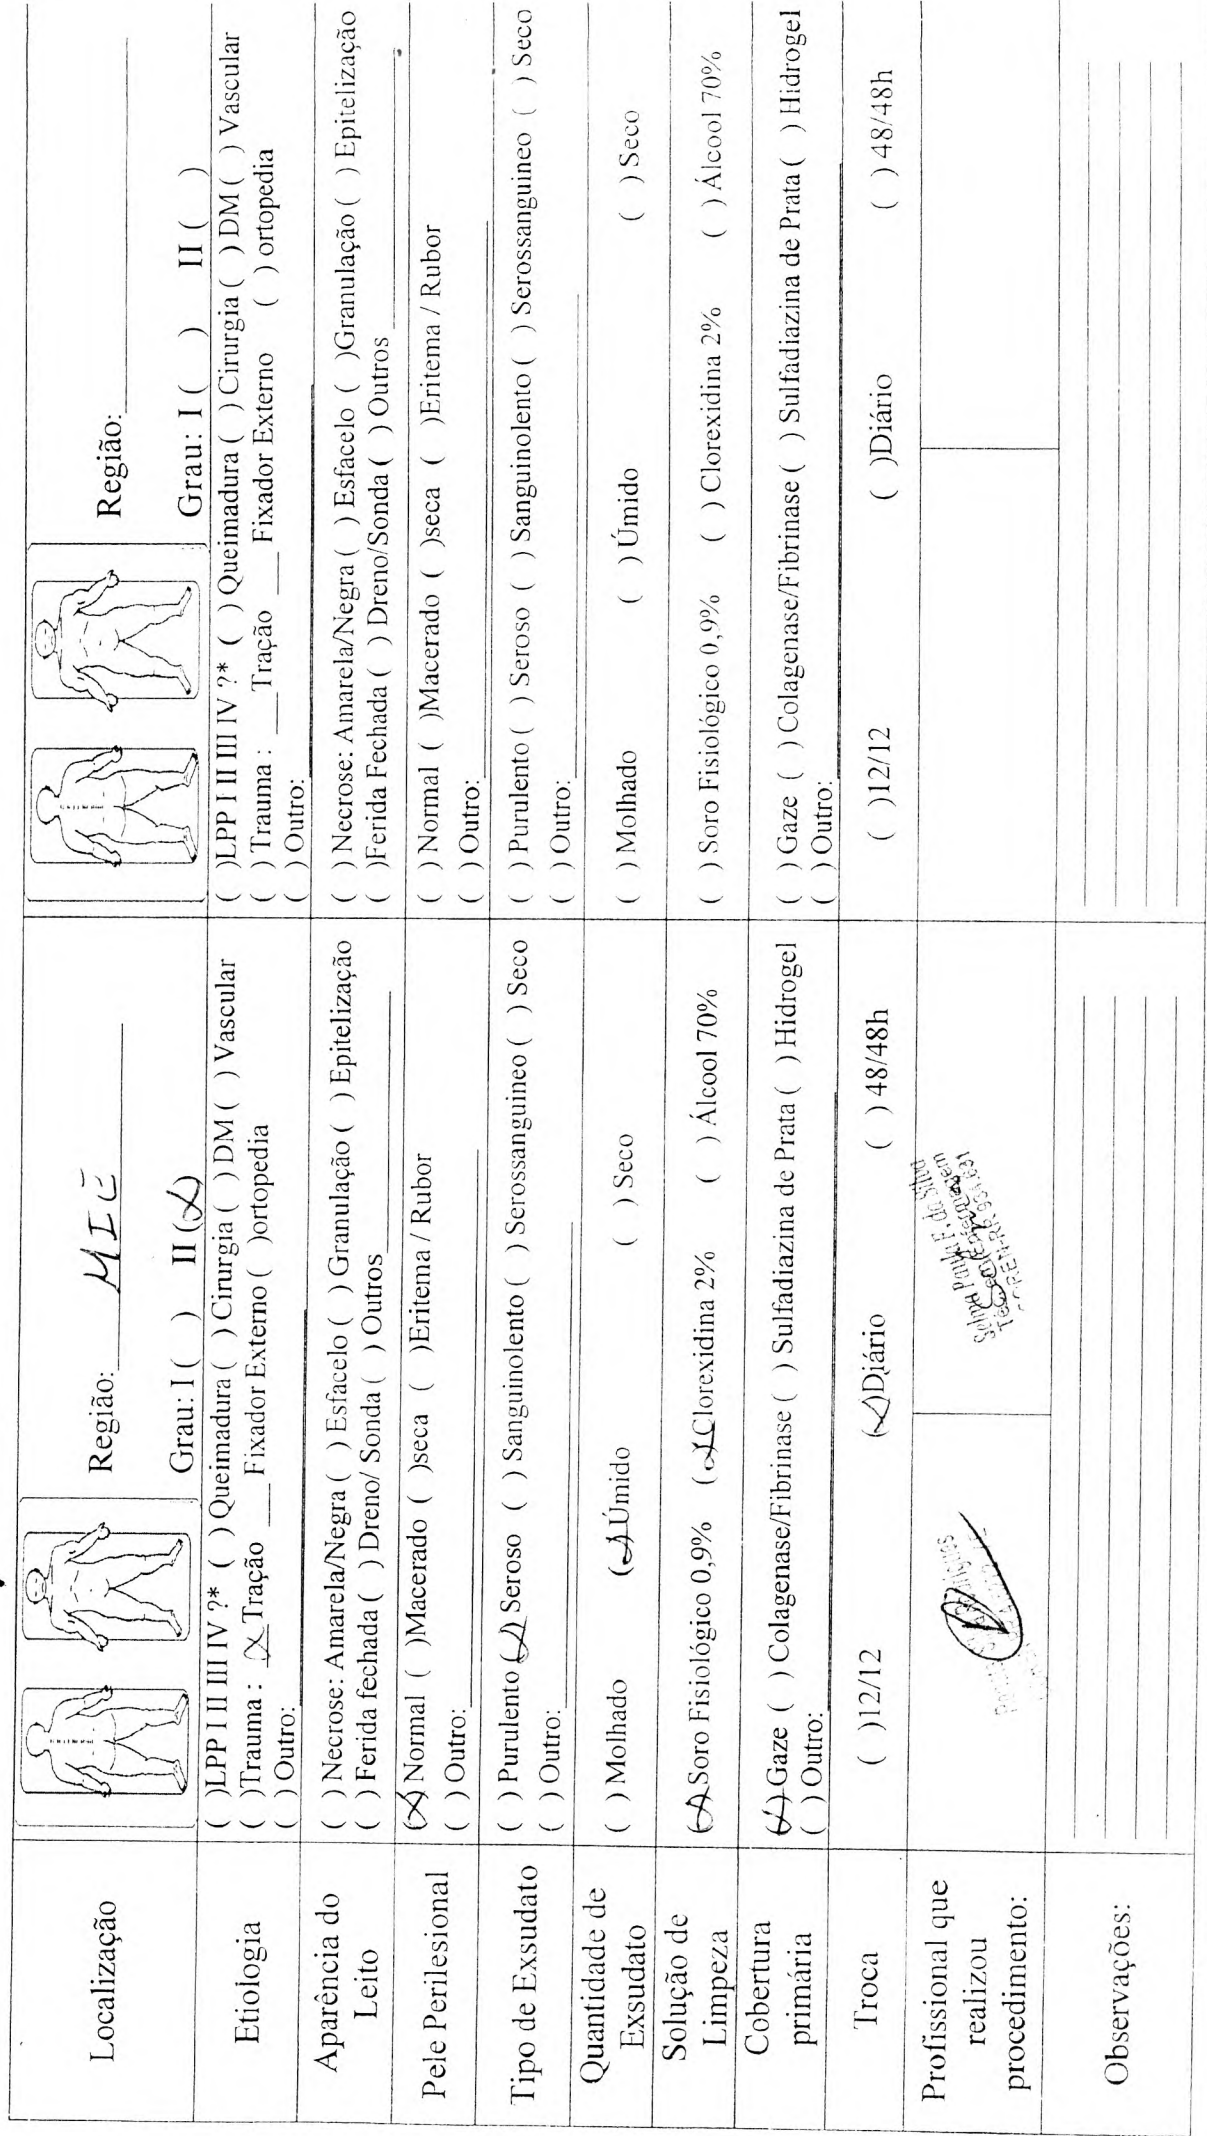 Localização
Região: MIE
Grau: I ( ) II (X)
Região:
Grau: I ( ) II ( )
Etiologia
( )LPP I II III IV ?* ( ) Queimadura ( ) Cirurgia ( ) DM ( ) Vascular
( )Trauma : X Tração ___Fixador Externo ( )ortopedia
( ) Outro:
( )LPP I II III IV ?* ( ) Queimadura ( ) Cirurgia ( ) DM ( ) Vascular
( ) Trauma : ___Tração ___Fixador Externo ( ) ortopedia
( ) Outro:
Aparência do
Leito
( ) Necrose: Amarela/Negra ( ) Esfacelo ( ) Granulação ( ) Epitelização
( ) Ferida fechada ( ) Dreno/ Sonda ( ) Outros
( ) Necrose: Amarela/Negra ( ) Esfacelo ( )Granulação ( ) Epitelização
( )Ferida Fechada ( ) Dreno/Sonda ( ) Outros
Pele Perilesional
(X) Normal ( )Macerado ( )seca ( )Eritema / Rubor
( ) Outro:
( ) Normal ( )Macerado ( )seca ( )Eritema / Rubor
( ) Outro:
Tipo de Exsudato
( ) Purulento (X) Seroso ( ) Sanguinolento ( ) Serossanguineo ( ) Seco
( ) Outro:
( ) Purulento ( ) Seroso ( ) Sanguinolento ( ) Serossanguineo ( ) Seco
( ) Outro:
Quantidade de
Exsudato
( ) Molhado (X) Úmido ( ) Seco
( ) Molhado ( ) Úmido ( ) Seco
Solução de
Limpeza
(X) Soro Fisiológico 0,9% (X) Clorexidina 2% ( ) Álcool 70%
( ) Soro Fisiológico 0,9% ( ) Clorexidina 2% ( ) Álcool 70%
Cobertura
primária
(X) Gaze ( ) Colagenase/Fibrinase ( ) Sulfadiazina de Prata ( ) Hidrogel
( ) Outro:
( ) Gaze ( ) Colagenase/Fibrinase ( ) Sulfadiazina de Prata ( ) Hidrogel
( ) Outro:
Troca
( )12/12 (X)Diário ( ) 48/48h
( )12/12 ( )Diário ( ) 48/48h
Profissional que
realizou
procedimento:
Paula F. da Silva
Observações: